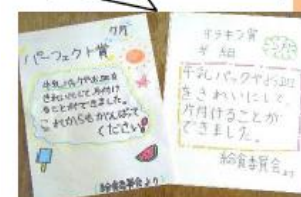 パーフェクト賞
牛乳パックやお皿を
きれいにして片付け
ることができました。
これからもがんばって
ください!
給食委員会より
キラキラ賞
牛乳パックやお皿
をきれいにして、
片付けることが
できました。
給食委員会より